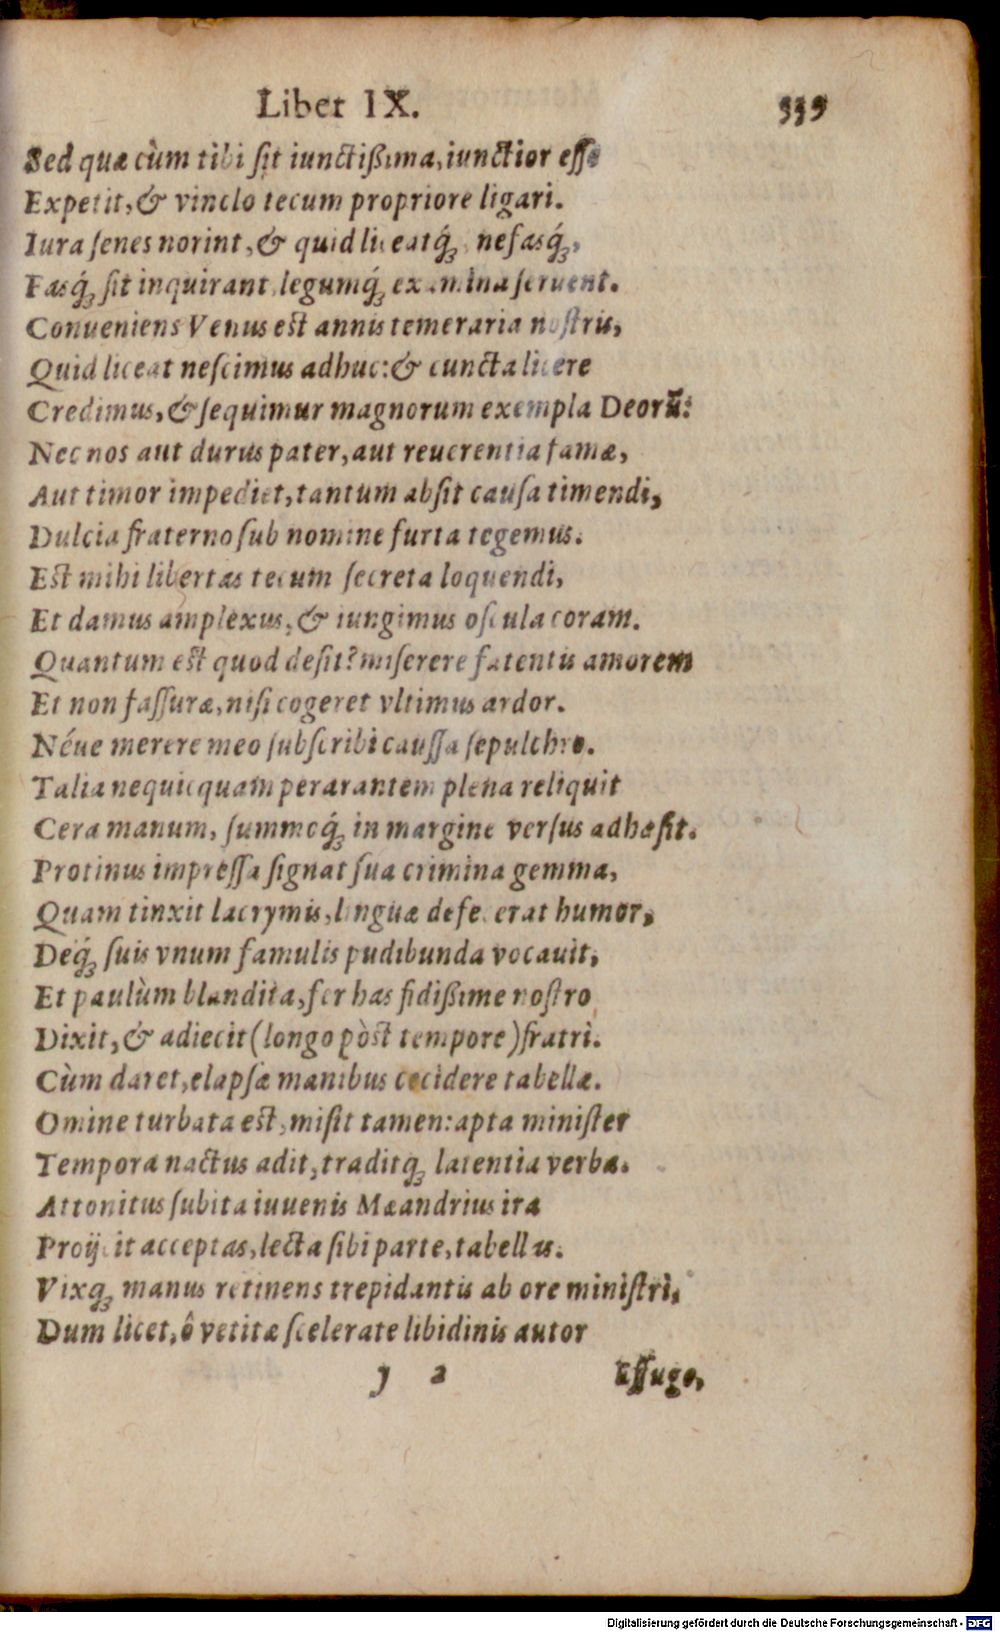 Liber IX. 339
Sed quæ cùm tibi ſit iunctißima, iunctior eſſe
Expetit, & vinclo tecum propriore ligari.
Iura ſenes norint, & quid liceatq́ꝫ, nefasq́ꝫ,
Fasq́ꝫ ſit inquirant, legumq́ꝫ examina ſeruent.
Conueniens Venus est annis temeraria noſtris,
Quid liceat neſcimus adhuc: & cuncta licere
Credimus, & ſequimur magnorum exempla Deorũ:
Nec nos aut durus pater, aut reuerentia famæ,
Aut timor impediet, tantum abſit cauſa timendi,
Dulcia fraterno ſub nomine furta tegemus.
Est mihi libertas tecum ſecreta loquendi,
Et damus amplexus, & iungimus oſcula coram.
Quantum est quod deſit? miſerere fatentis amorem
Et non faſſuræ, niſi cogeret vltimus ardor.
Néue merere meo ſubſcribi cauſſa ſepulchro.
Talia nequicquam perarantem plena reliquit
Cera manum, ſummoq́ꝫ in margine verſus adhæſit.
Protinus impreſſa ſignat ſua crimina gemma,
Quam tinxit lacrymis, linguæ defecerat humor,
Deq́ꝫ ſuis vnum famulis pudibunda vocauit,
Et paulùm blandita, fer has fidißime noſtro
Dixit, & adiecit (longo pòst tempore) fratri.
Cùm daret, elapſæ manibus cecidere tabellæ.
Omine turbata est, miſit tamen: apta miniſter
Tempora nactus adit, traditqꝫ latentia verba.
Attonitus ſubita iuuenis Mæandrius ira
Proijcit acceptas, lecta ſibi parte, tabellas.
Vixqꝫ manus retinens trepidantis ab ore miniſtri,
Dum licet, ô vetitæ ſcelerate libidinis autor
y 2 Effuge,
Digitalisierung gefördert durch die Deutsche Forschungsgemeinschaft - DFG